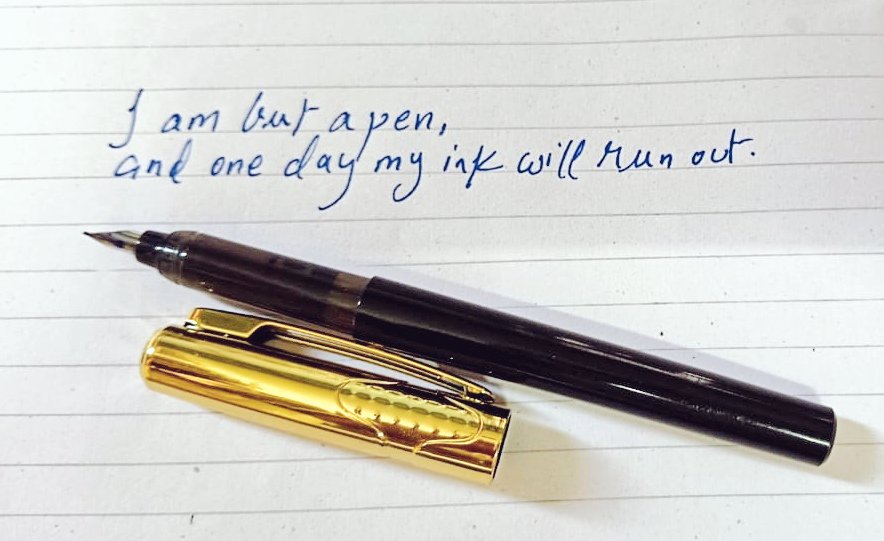 I am but a pen,
and one day my ink will run out.